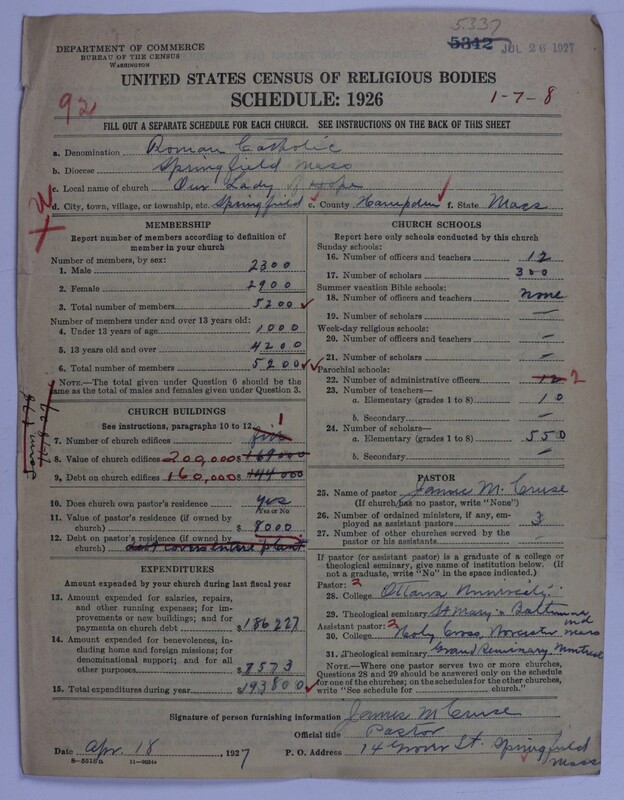 5.337
5342 JUL 26 1927
DEPARTMENT OF COMMERCE
BUREAU OF THE CENSUS
WASHINGTON
UNITED STATES CENSUS OF RELIGIOUS BODIES
92
SCHEDULE: 1926
1-7-8
FILL OUT A SEPARATE SCHEDULE FOR EACH CHURCH. SEE INSTRUCTIONS ON THE BACK OF THIS SHEET
a. Denomination Roman Catholic
b. Diocese Springfield Mass
c. Local name of church Our Lady of Hope
d. City, town, village, or township, etc. Springfield e. County Hampden f. State Mass
MEMBERSHIP
Report number of members according to definition of
member in your church
Number of members, by sex:
1. Male 2300
2. Female 2900
3. Total number of members 5200
Number of members under and over 13 years old:
4. Under 13 years of age 1000
5. 13 years old and over 4200
6. Total number of members 5200
NOTE.—The total given under Question 6 should be the
same as the total of males and females given under Question 3.
CHURCH BUILDINGS
See instructions, paragraphs 10 to 12
7. Number of church edifices 1
8. Value of church edifices 200,000 $ 169000
9. Debt on church edifices 160,000 $ 144000
10. Does church own pastor's residence yes
Yes or No
11. Value of pastor's residence (if owned by
church) $ 8000
12. Debt on pastor's residence (if owned by
church) debt covers entire plant
EXPENDITURES
Amount expended by your church during last fiscal year
13. Amount expended for salaries, repairs,
and other running expenses; for im-
provements or new buildings; and for
payments on church debt $ 186227
14. Amount expended for benevolences, in-
cluding home and foreign missions; for
denominational support; and for all
other purposes $ 7573
15. Total expenditures during year $ 193800
CHURCH SCHOOLS
Report here only schools conducted by this church
Sunday schools:
16. Number of officers and teachers 12
17. Number of scholars 300
Summer vacation Bible schools:
18. Number of officers and teachers none
19. Number of scholars —
Week-day religious schools:
20. Number of officers and teachers —
21. Number of scholars —
Parochial schools:
22. Number of administrative officers 12 2
23. Number of teachers—
a. Elementary (grades 1 to 8) 10
b. Secondary —
24. Number of scholars—
a. Elementary (grades 1 to 8) 550
b. Secondary —
PASTOR
25. Name of pastor James M. Cruse
(If church has no pastor, write "None")
26. Number of ordained ministers, if any, em-
ployed as assistant pastors 3
27. Number of other churches served by the
pastor or his assistants —
If pastor (or assistant pastor) is a graduate of a college or
theological seminary, give name of institution below. (If
not a graduate, write "No" in the space indicated.)
Pastor: 2
28. College Ottawa University
29. Theological seminary St Mary's Baltimore Md
Assistant pastor: 2
30. College Holy Cross, Worcester Mass
31. Theological seminary Grand Seminary Montreal
NOTE.—Where one pastor serves two or more churches,
Questions 28 and 29 should be answered only on the schedule
for one of the churches; on the schedules for the other churches,
write "See schedule for church."
Signature of person furnishing information James M Cruse
Official title Pastor
Date Apr. 18, 1927 P. O. Address 14 Grover St. Springfield
Mass